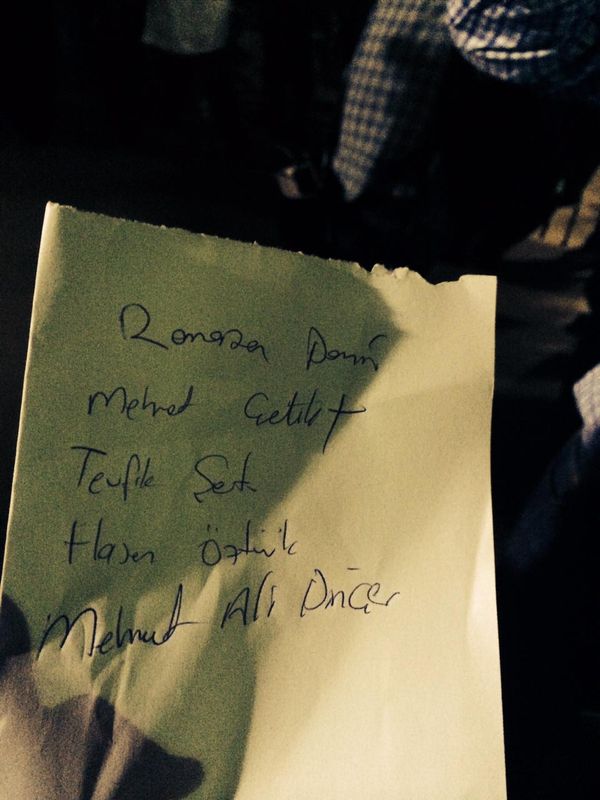 Ramazan Demir
Mehmet
Tevfik Şek
Hasan Öztürk
Mehmut Ali Dinçer